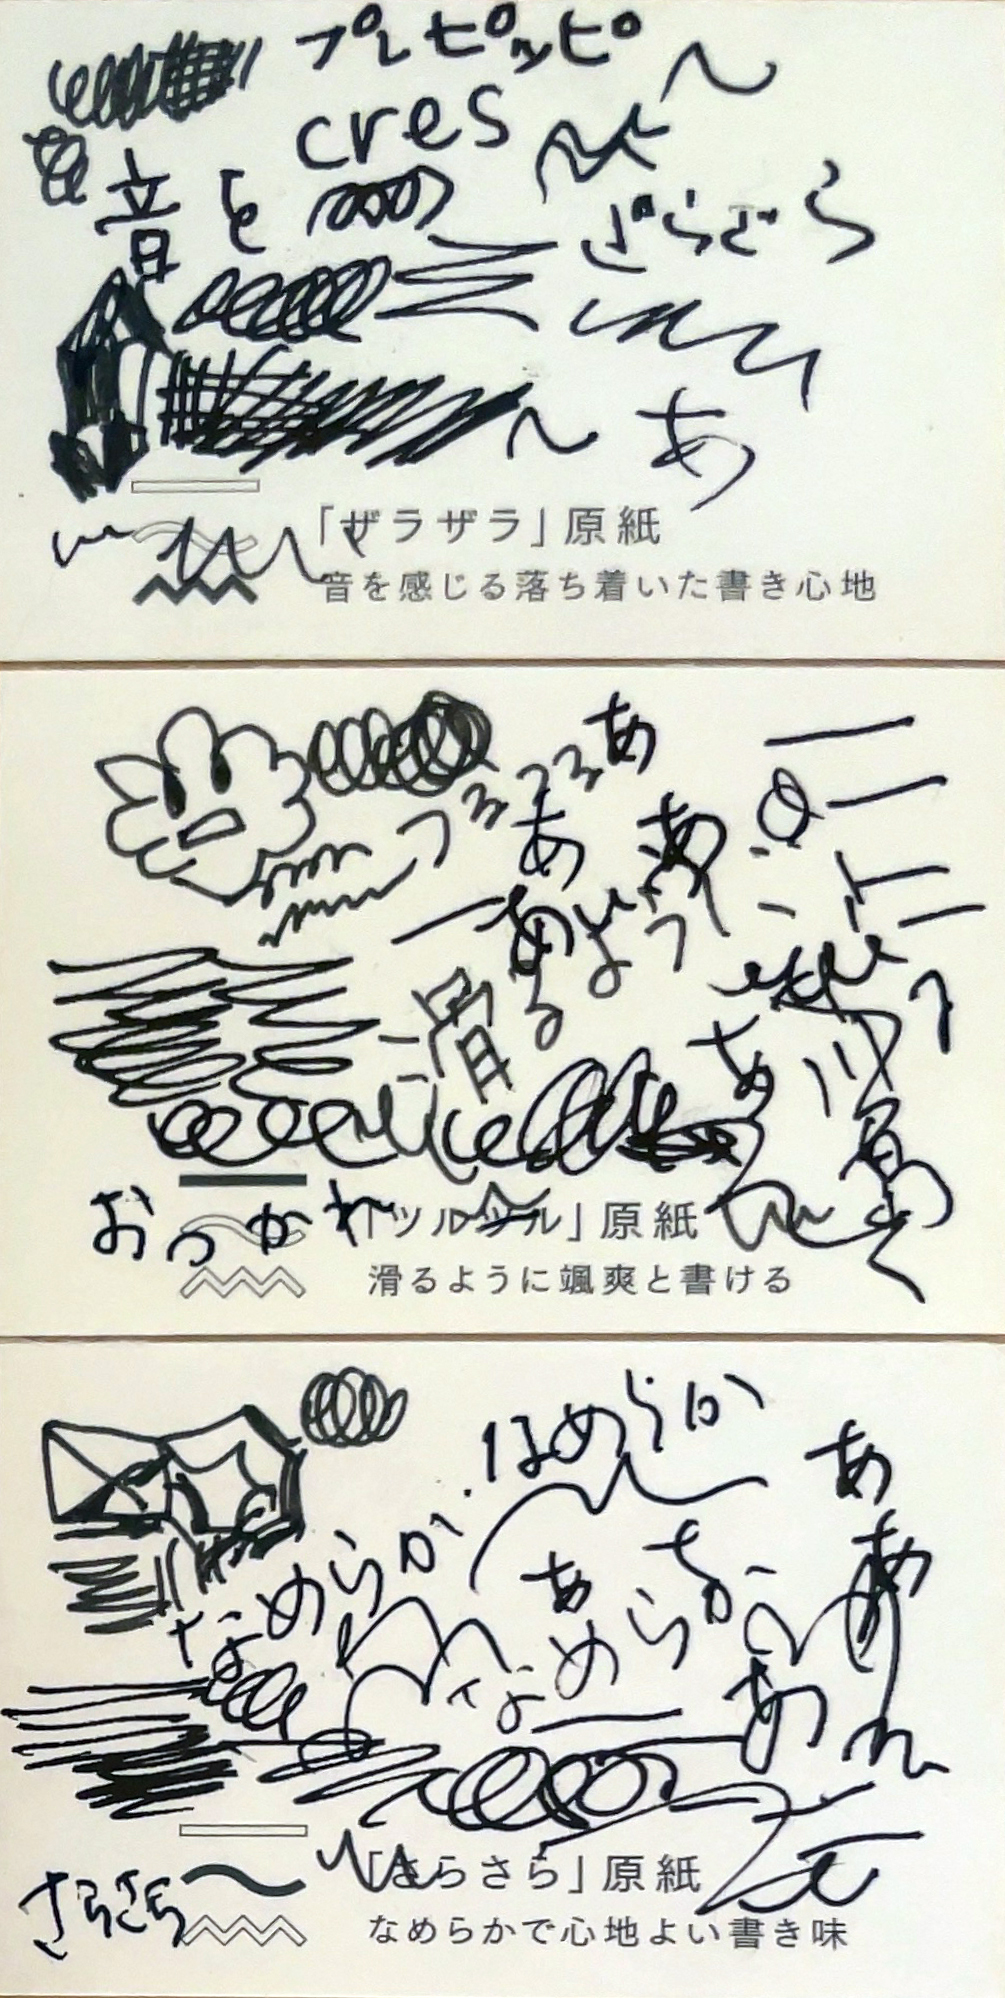 プレピッピ
cres
音を
ざらざら
あ
「ザラザラ」原紙
音を感じる落ち着いた書き心地
あ
つるつる
あ
あ
あ
滑るよう
あ
おつかれ
「ツルツル」原紙
滑るように颯爽と書ける
なめらか
あ
なめらか
あ
あ
なめらか
あ
さらさら
「さらさら」原紙
なめらかで心地よい書き味